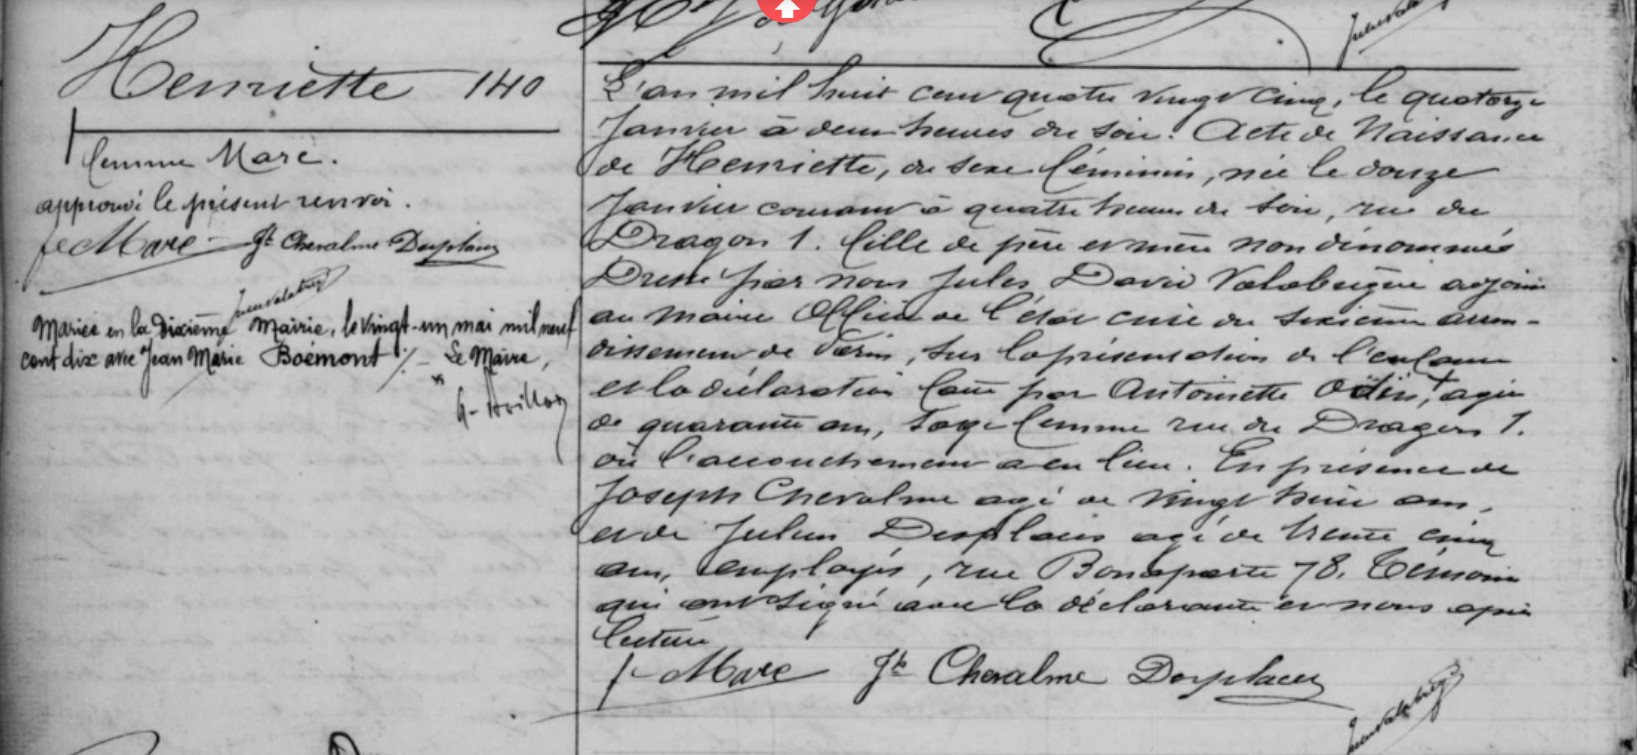 Henriette 140
femme Marc.
approuvé le présent renvoi.
fe Marc Jh Chevalme Desplaces
Mariée en la dixième Mairie, le vingt-un mai mil neuf
cent dix avec Jean Marie Boémont ./. Le Maire,
L'an mil huit cent quatre vingt cinq, le quatorze
Janvier à deux heures du soir. Acte de Naissance
de Henriette, du sexe féminin, née le douze
Janvier courant à quatre heures du soir, rue du
Dragon 1. fille de père et mère non dénommés
Dressé par nous Jules David Valabrègue adjoint
au maire Officier de l'état civil du sixième arron-
dissement de Paris, sur la présentation de l'enfant
et la déclaration faite par Antoinette Odin, + agée
de quarante ans, sage femme rue du Dragon 1.
où l'accouchement a eu lieu. En présence de
Joseph Chevalme agé de vingt huit ans,
et de Julien Desplaces agé de trente cinq
ans, employés, rue Bonaparte 78. Témoins
qui ont signé avec la déclarante et nous après
lecture
f Marc Jh Chevalme Desplaces